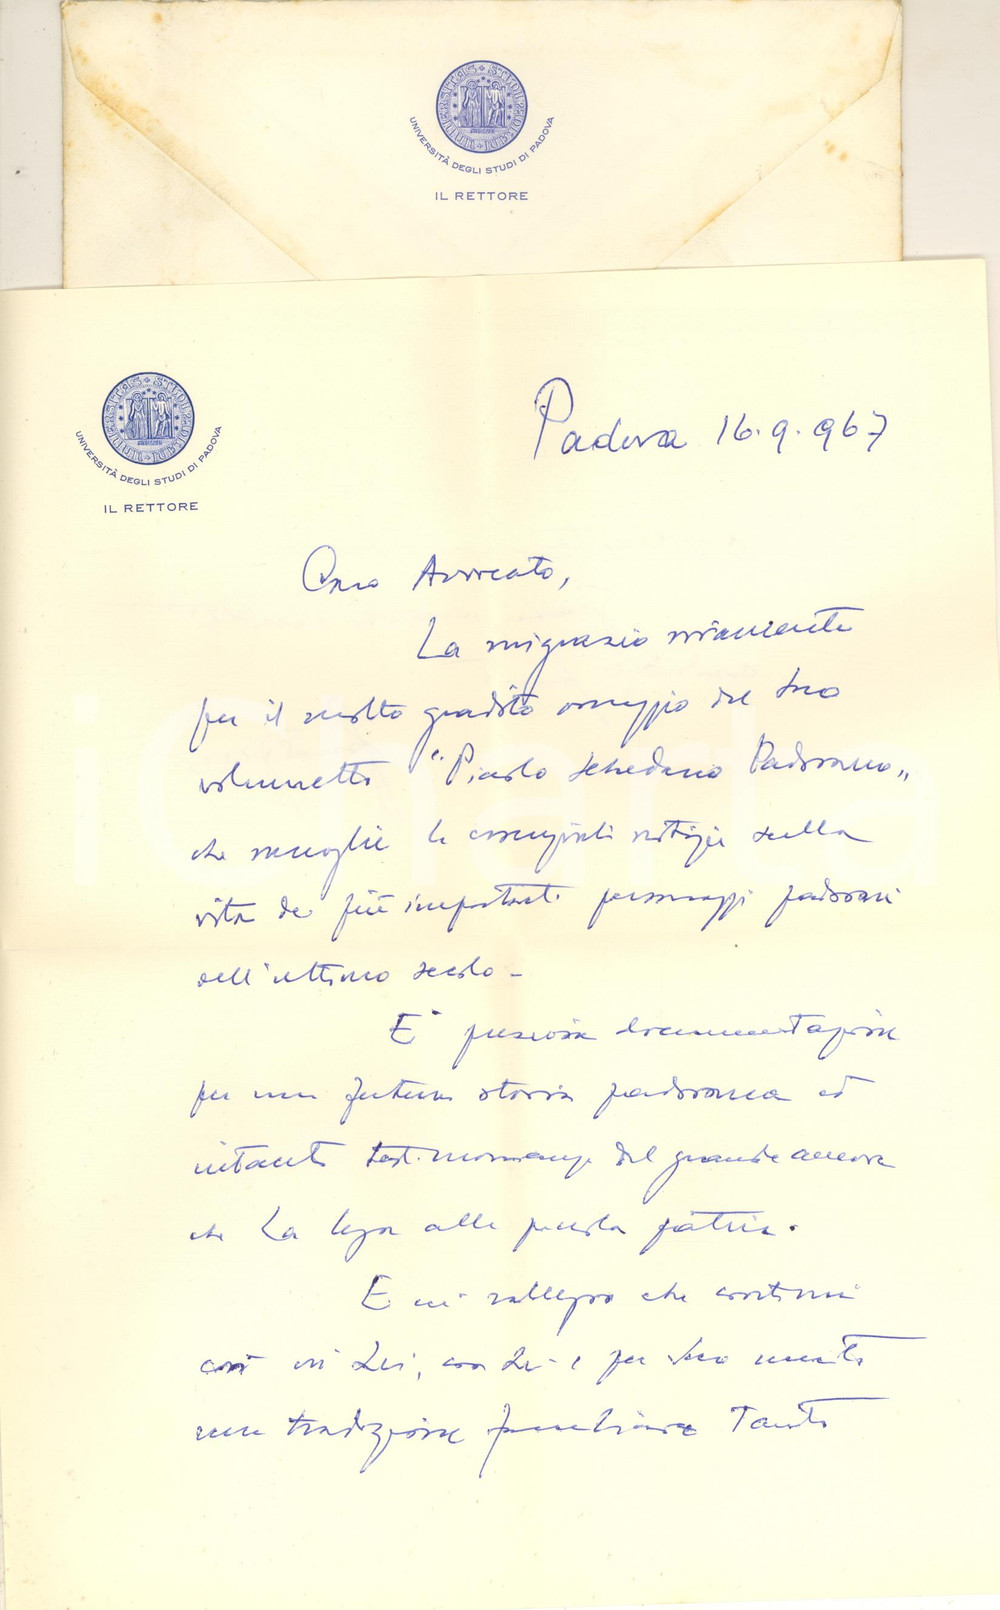 UNIVERSITAS STUDII PADUANI
UNIVERSITÀ DEGLI STUDI DI PADOVA
IL RETTORE
UNIVERSITÀ DEGLI STUDI DI PADOVA
IL RETTORE
Padova 16.9.967
Caro Avvocato,
La ringrazio vivamente
per il molto gradito omaggio del Suo
volumetto "Piccolo schedario Padovano"
che raccoglie le notizie sulla
vita dei più importanti personaggi padovani
dell'ultimo secolo -
E' preziosa documentazione
per una futura storia padovana ed
intanto testimonianza del grande amore
che La lega alla piccola patria.
E mi rallegro che continui
così in Lei, con Lei e per Suo merito
una tradizione familiare tanto